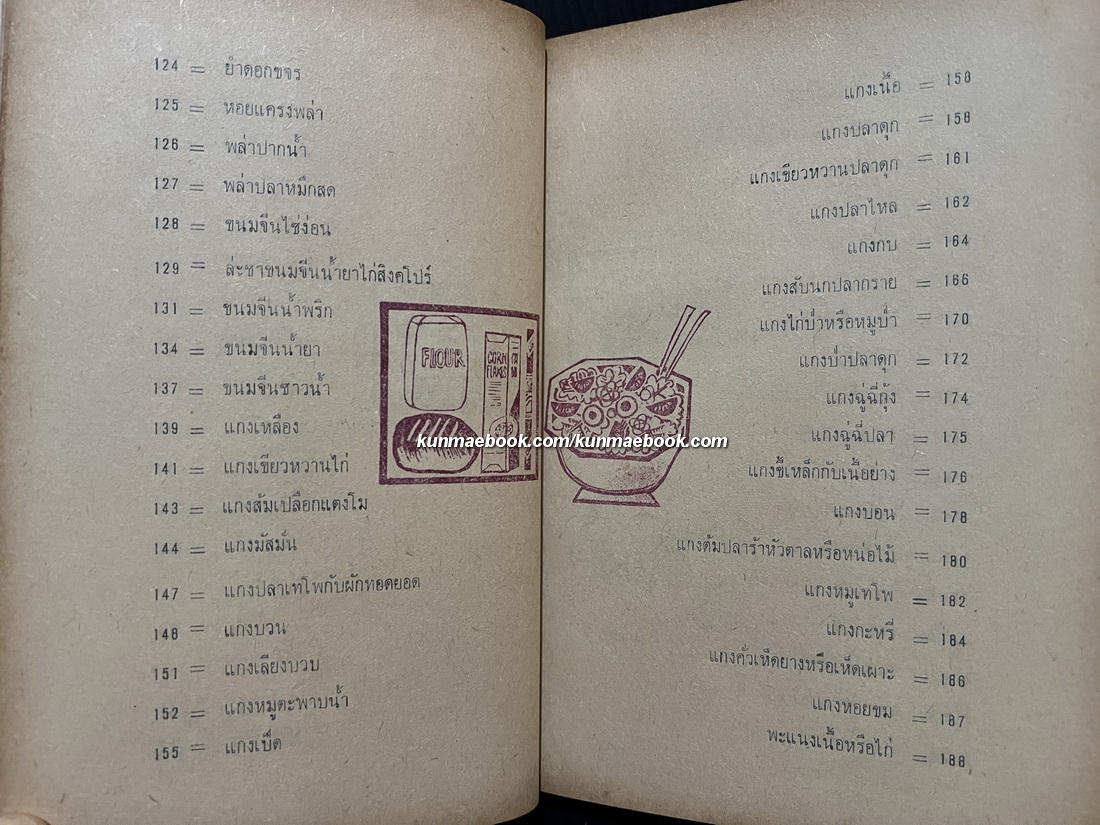 124 = ยำดอกขจร
125 = หอยแครงพล่า
126 = พล่าปากน้ำ
127 = พล่าปลาหมึกสด
128 = ขนมจีนไซ่ง่อน
129 = ล่ะซาขนมจีนน้ำยาไก่สิงคโปร์
131 = ขนมจีนน้ำพริก
134 = ขนมจีนน้ำยา
137 = ขนมจีนซาวน้ำ
139 = แกงเหลือง
141 = แกงเขียวหวานไก่
143 = แกงส้มเปลือกแตงโม
144 = แกงมัสมั่น
147 = แกงปลาเทโพกับผักทอดยอด
148 = แกงบวน
151 = แกงเลียงบวบ
152 = แกงหมูตะพาบน้ำ
155 = แกงเป็ด
FLOUR
CORN
FLAKES
kunmaebook.com/kunmaebook.com
แกงเนื้อ = 158
แกงปลาดุก = 158
แกงเขียวหวานปลาดุก = 161
แกงปลาไหล = 162
แกงกบ = 164
แกงสับนกปลากราย = 166
แกงไก่ป่าหรือหมูป่า = 170
แกงป่าปลาดุก = 172
แกงฉู่ฉี่กุ้ง = 174
แกงฉู่ฉี่ปลา = 175
แกงขี้เหล็กกับเนื้อย่าง = 176
แกงบอน = 178
แกงต้มปลาร้าหัวตาลหรือหน่อไม้ = 180
แกงหมูเทโพ = 182
แกงกะหรี่ = 184
แกงคั่วเห็ดยางหรือเห็ดเผาะ = 186
แกงหอยขม = 187
พะแนงเนื้อหรือไก่ = 188